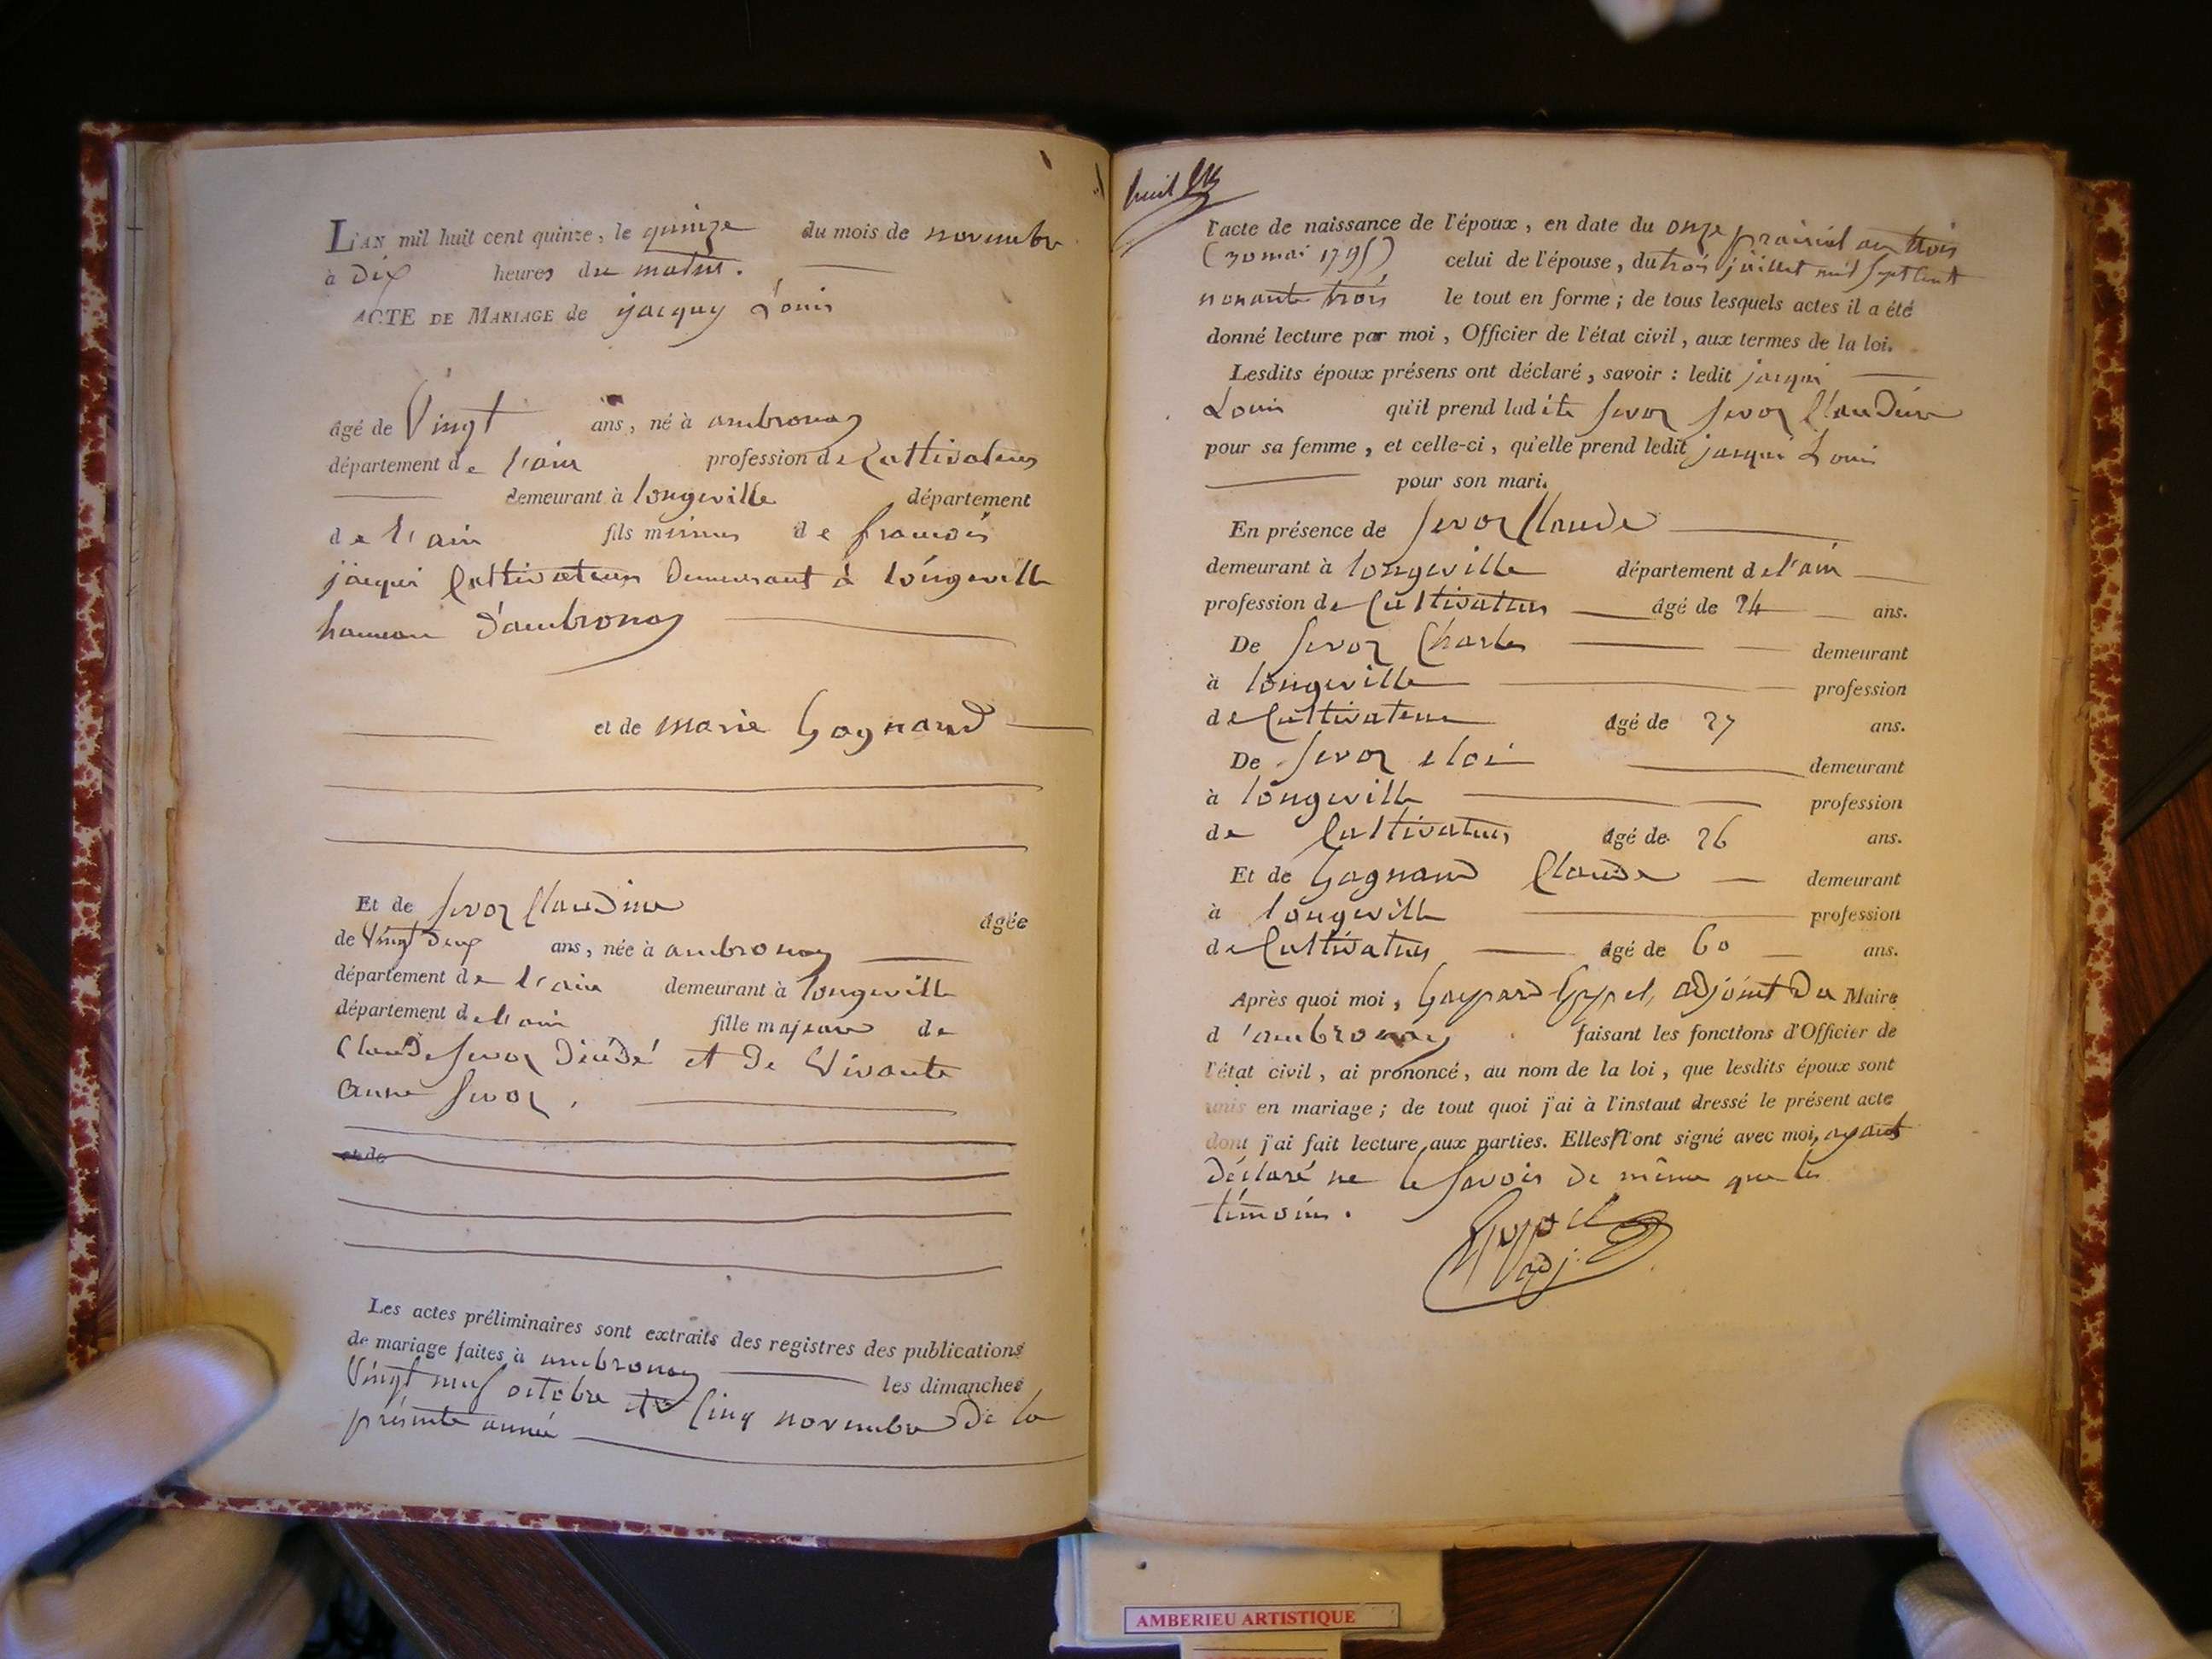 L'AN mil huit cent quinze, le quinze du mois de novembre
à Dix heures du matin.
ACTE DE MARIAGE de jacquy Louis
âgé de Vingt ans, né à ambronay
département de l'ain profession de Cultivateur
demeurant à longeville département
de l'ain fils mineur de francois
jacqui Cultivateur Demeurant à longeville
hameau d'ambronay
et de marie Gagnaud
Et de Servoz Claudine agée
de Vingt Deux ans, née à ambronay
département de l'ain demeurant à longeville
département de l'ain fille majeure de
Claude Servoz Décédé et De Vivante
Anne Servoz.
et de
Les actes préliminaires sont extraits des registres des publications
de mariage faites à ambronay les dimanches
Vingt neuf octobre et Cinq novembre De la
présente année
huit
l'acte de naissance de l'époux, en date du onze prairial an trois
(30 mai 1795) celui de l'épouse, du trois juillet mil sept cent
nonante trois le tout en forme; de tous lesquels actes il a été
donné lecture par moi, Officier de l'état civil, aux termes de la loi.
Lesdits époux présens ont déclaré, savoir : ledit jacqui
Louis qu'il prend ladite Servoz Servoz Claudine
pour sa femme, et celle-ci, qu'elle prend ledit jacqui Louis
pour son mari.
En présence de Servoz Claude
demeurant à longeville département de l'ain
profession de Cultivateur âgé de 24 ans.
De Servoz Charles demeurant
à longeville profession
de Cultivateur âgé de 27 ans.
De Servoz eloi demeurant
à longeville profession
de Cultivateur âgé de 26 ans.
Et de Gagnaud Claude demeurant
à longeville profession
de Cultivateur âgé de 60 ans.
Après quoi moi, Gaspard Goppel, adjoint Du Maire
d'ambronay faisant les fonctions d'Officier de
l'état civil, ai prononcé, au nom de la loi, que lesdits époux sont
unis en mariage; de tout quoi j'ai à l'instaut dressé le présent acte
dont j'ai fait lecture aux parties. Elles n'ont signé avec moi, ayant
Déclaré ne le Savoir De même que les
témoins.
Goppel
adj.
AMBERIEU ARTISTIQUE